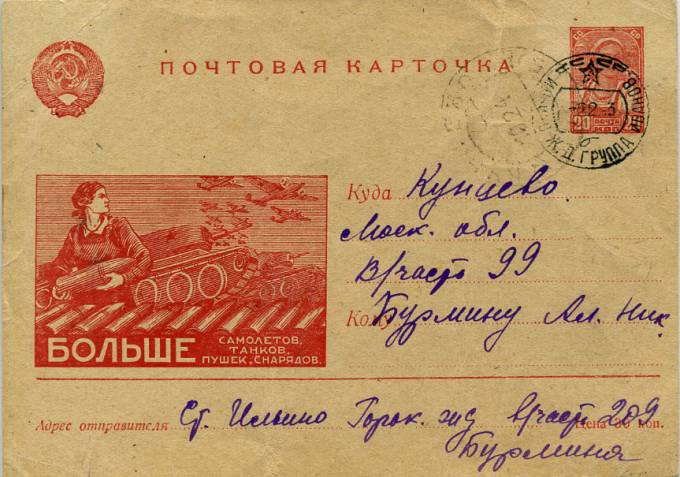 ПОЧТОВАЯ КАРТОЧКА
20 ПОЧТА
Ж.Д. ГРУППА
Куда Кунцево
Моск. обл.
В/часть 99
Кому Бурмину Ал. Ник.
БОЛЬШЕ
САМОЛЕТОВ,
ТАНКОВ,
ПУШЕК, СНАРЯДОВ.
Адрес отправителя Ст. Ильино Горьк. жд в/часть 209
Цена 30 коп.
Бурмина